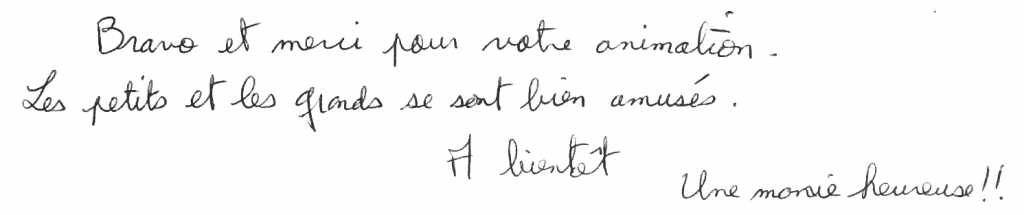 Bravo et merci pour votre animation.
Les petits et les grands se sont bien amusés.
A bientôt
Une mariée heureuse!!